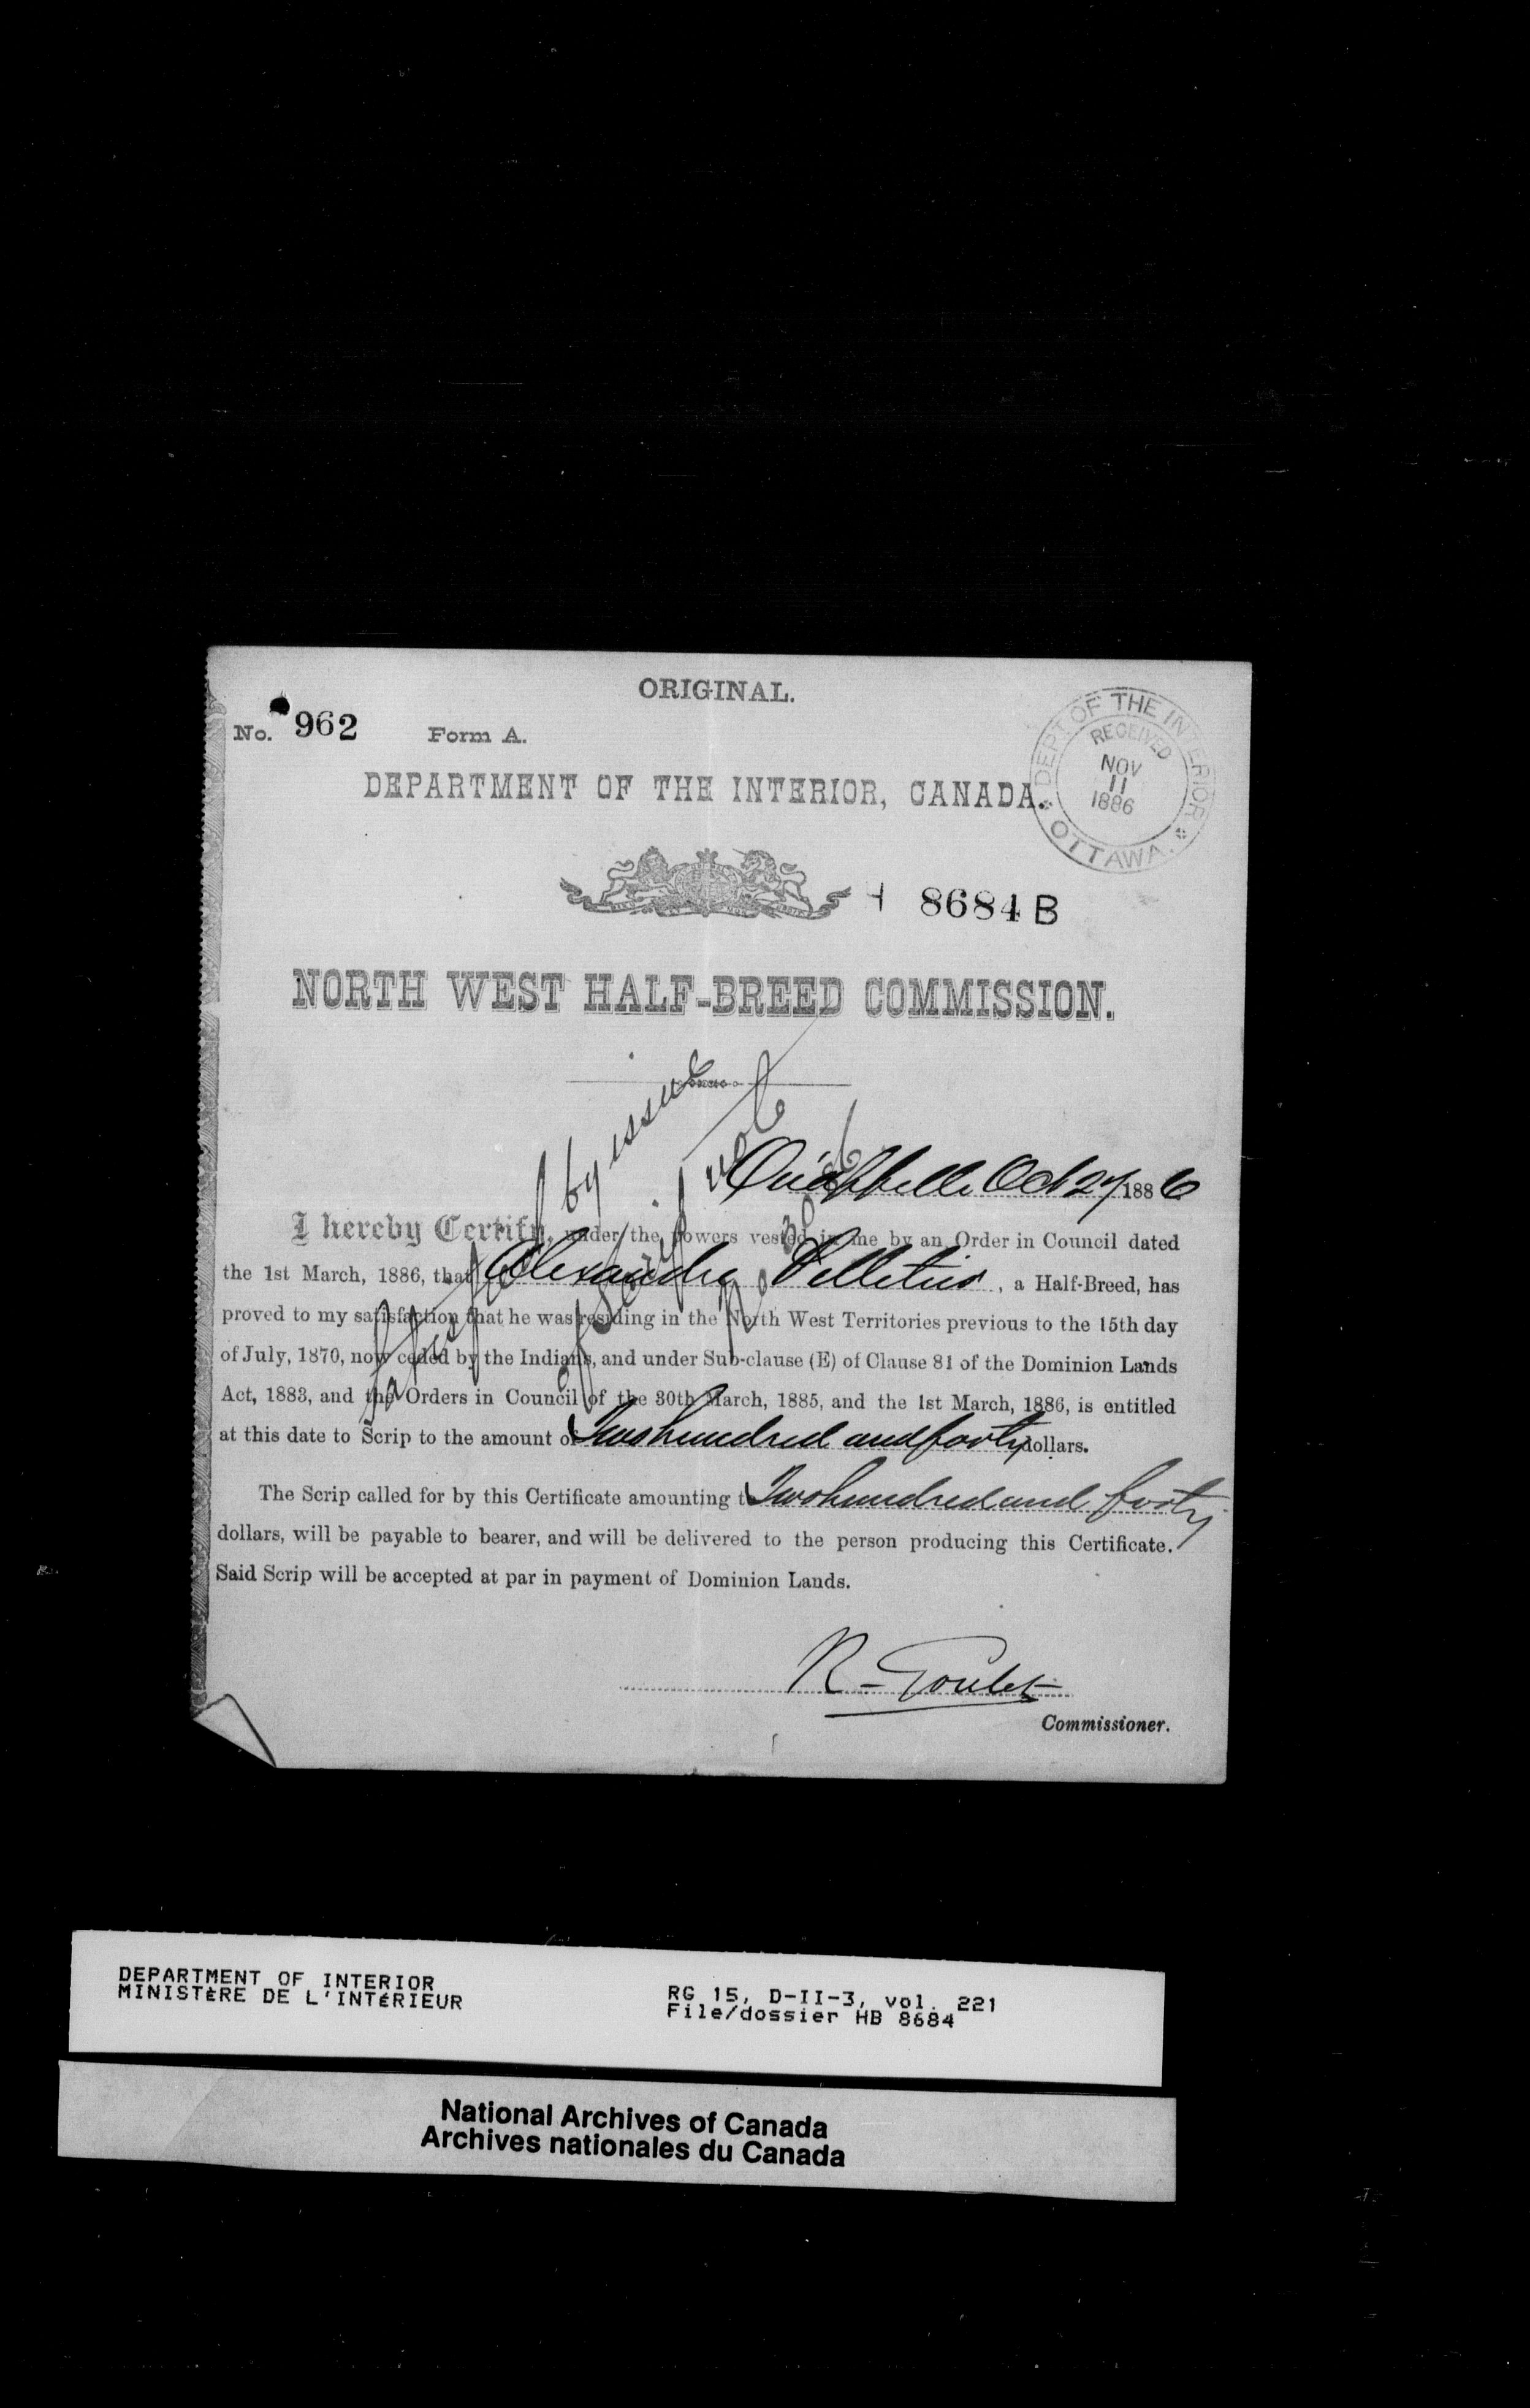 ORIGINAL.
No. 962 Form A.
DEPT OF THE INTERIOR
RECEIVED
NOV
11
1886
OTTAWA.
DEPARTMENT OF THE INTERIOR, CANADA.
8684 B
NORTH WEST HALF-BREED COMMISSION.
by issue
Qu'Appelle Oct 27 1886
I hereby Certify, under the powers vested in me by an Order in Council dated
the 1st March, 1886, that Alexandre Pelletier, a Half-Breed, has
proved to my satisfaction that he was residing in the North West Territories previous to the 15th day
of July, 1870, now ceded by the Indians, and under Sub-clause (E) of Clause 81 of the Dominion Lands
Act, 1883, and the Orders in Council of the 30th March, 1885, and the 1st March, 1886, is entitled
at this date to Scrip to the amount of Two hundred and forty dollars.
The Scrip called for by this Certificate amounting to Two hundred and forty
dollars, will be payable to bearer, and will be delivered to the person producing this Certificate.
Said Scrip will be accepted at par in payment of Dominion Lands.
R. Goulet
Commissioner.
DEPARTMENT OF INTERIOR
MINISTÈRE DE L'INTÉRIEUR
RG 15, D-II-3, vol. 221
File/dossier HB 8684
National Archives of Canada
Archives nationales du Canada